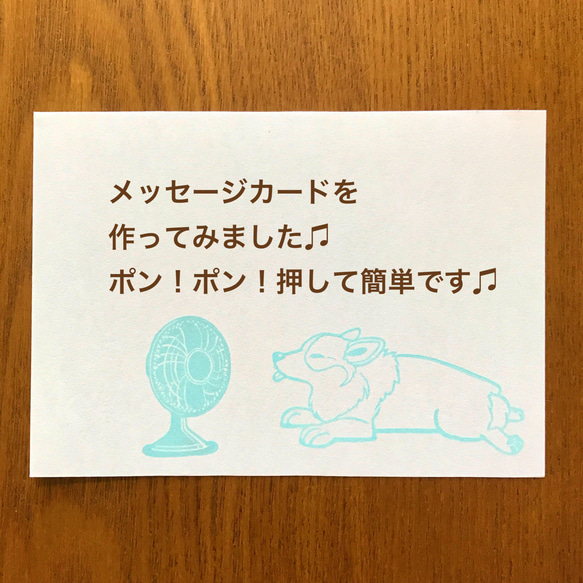 メッセージカードを
作ってみました♫
ポン！ポン！押して簡単です♫